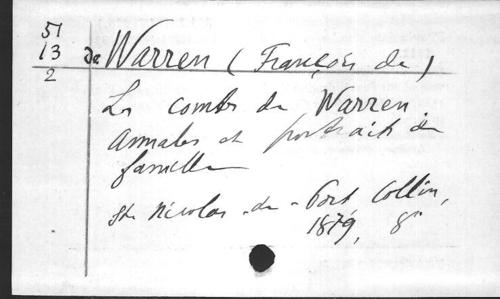 51
13
2
de Warren (François de)
Les comtes de Warren
Annales et portraits de
famille
St. Nicolas-de-Port, Collin,
1879, 8°